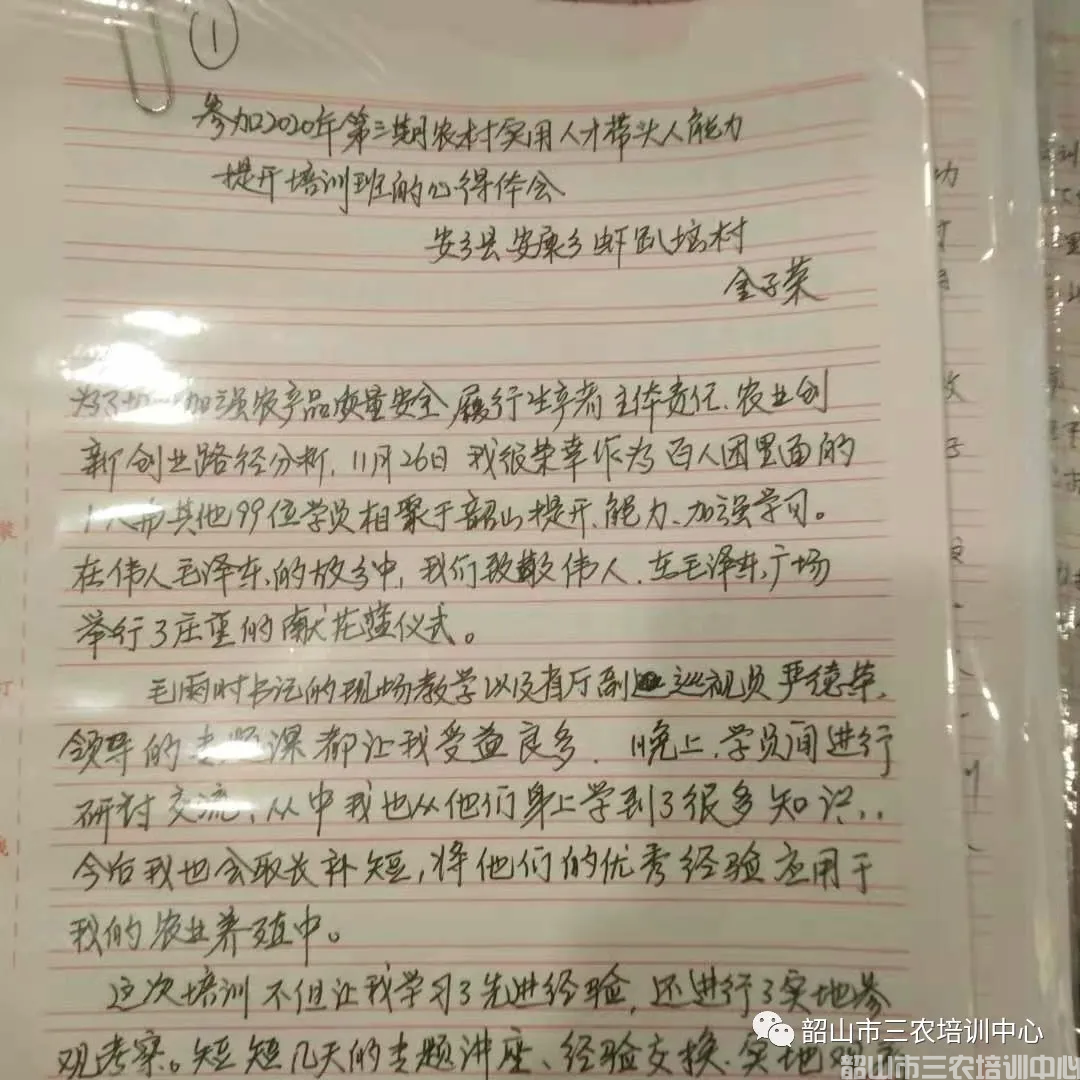 ①
参加2020年第三期农村实用人才带头人能力
提升培训班的心得体会
安乡县安康乡虾趴垴村
金子荣
为了加强农产品质量安全履行生产者主体责任、农业创
新创业路径分析,11月26日我很荣幸作为百人团里面的
1其他99位学员相聚于韶山提升、能力、加强学习。
在伟人毛泽东的故乡中,我们致敬伟人,在毛泽东广场
举行了庄重的献花篮仪式。
毛雨时书记的现场教学以及省厅副巡视员严德荣,
领导的专题课都让我受益良多,晚上,学员间进行
研讨交流,从中我也从他们身上学到了很多知识,.
今后我也会取长补短,将他们的优秀经验应用于
我的农业养殖中。
这次培训不但让我学习了先进经验,还进行了实地参
观考察。短短几天的专题讲座、经验交换、实地
韶山市三农培训中心
韶山市三农培训中心